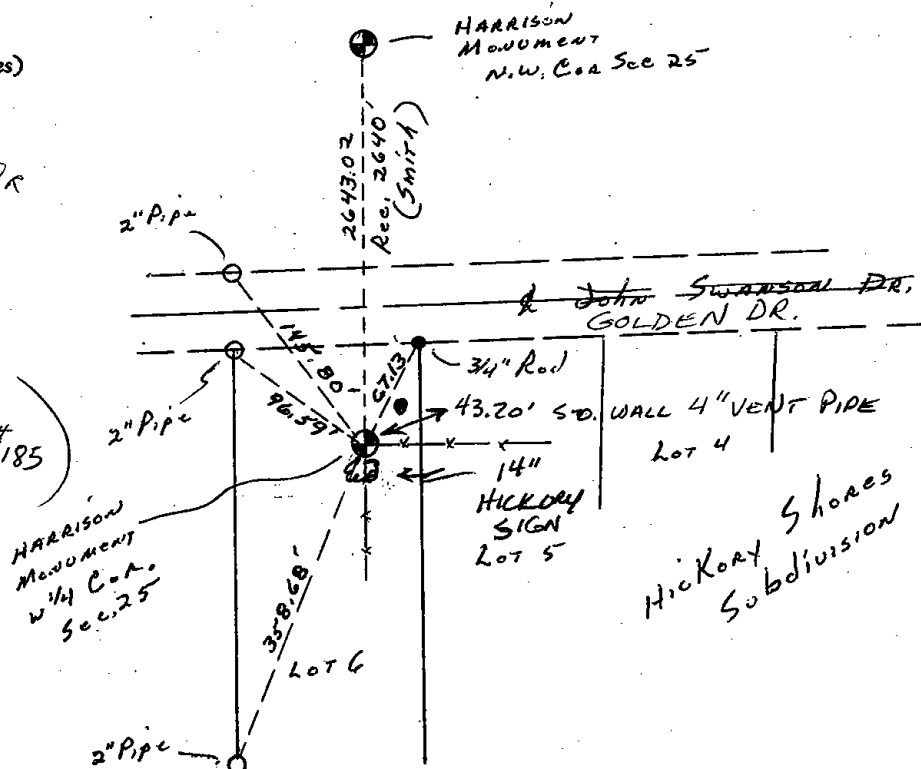 HARRISON
MONUMENT
N.W. COR Sec 25
es)
2643.02
Rec. 2640'
(Smith)
2" Pipe
℄ John Swanson DR.
GOLDEN DR.
145.80
67.13'
3/4" Rod
96.59'
2" Pipe
43.20' SO. WALL 4" VENT PIPE
LOT 4
185
14"
HICKORY
SIGN
LOT 5
HARRISON
MONUMENT
W 1/4 COR.
Sec. 25
Hickory Shores
Subdivision
358.68'
LOT 6
2" Pipe